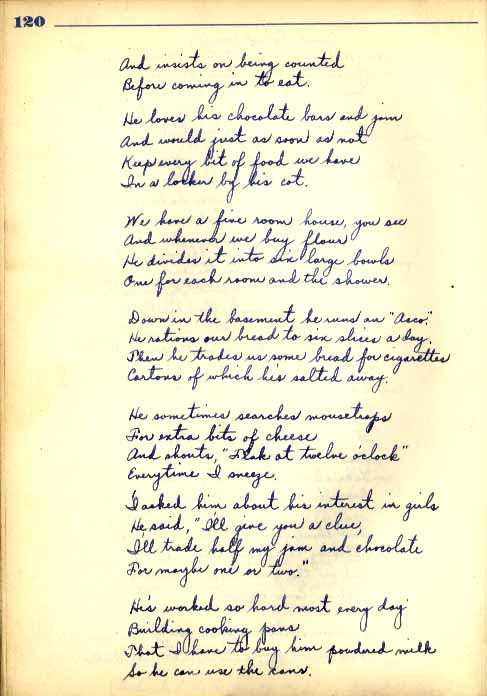 120
And insists on being counted
Before coming in to eat.
He loves his chocolate bars and jam
And would just as soon as not
Keep every bit of food we have
In a locker by his cot.
We have a five room house, you see
And whenever we buy flour
He divides it into six large bowls
One for each room and the shower.
Down in the basement he runs an "Asco."
He rations our bread to six slices a day.
Then he trades us some bread for cigarettes
Cartons of which he's salted away.
He sometimes searches mousetraps
For extra bits of cheese
And shouts, "Flak at twelve o'clock"
Everytime I sneeze.
I asked him about his interest in girls
He said, "I'll give you a clue,
I'll trade half my jam and chocolate
For maybe one or two."
He's worked so hard most every day
Building cooking pans
That I have to buy him powdered milk
So he can use the cans.